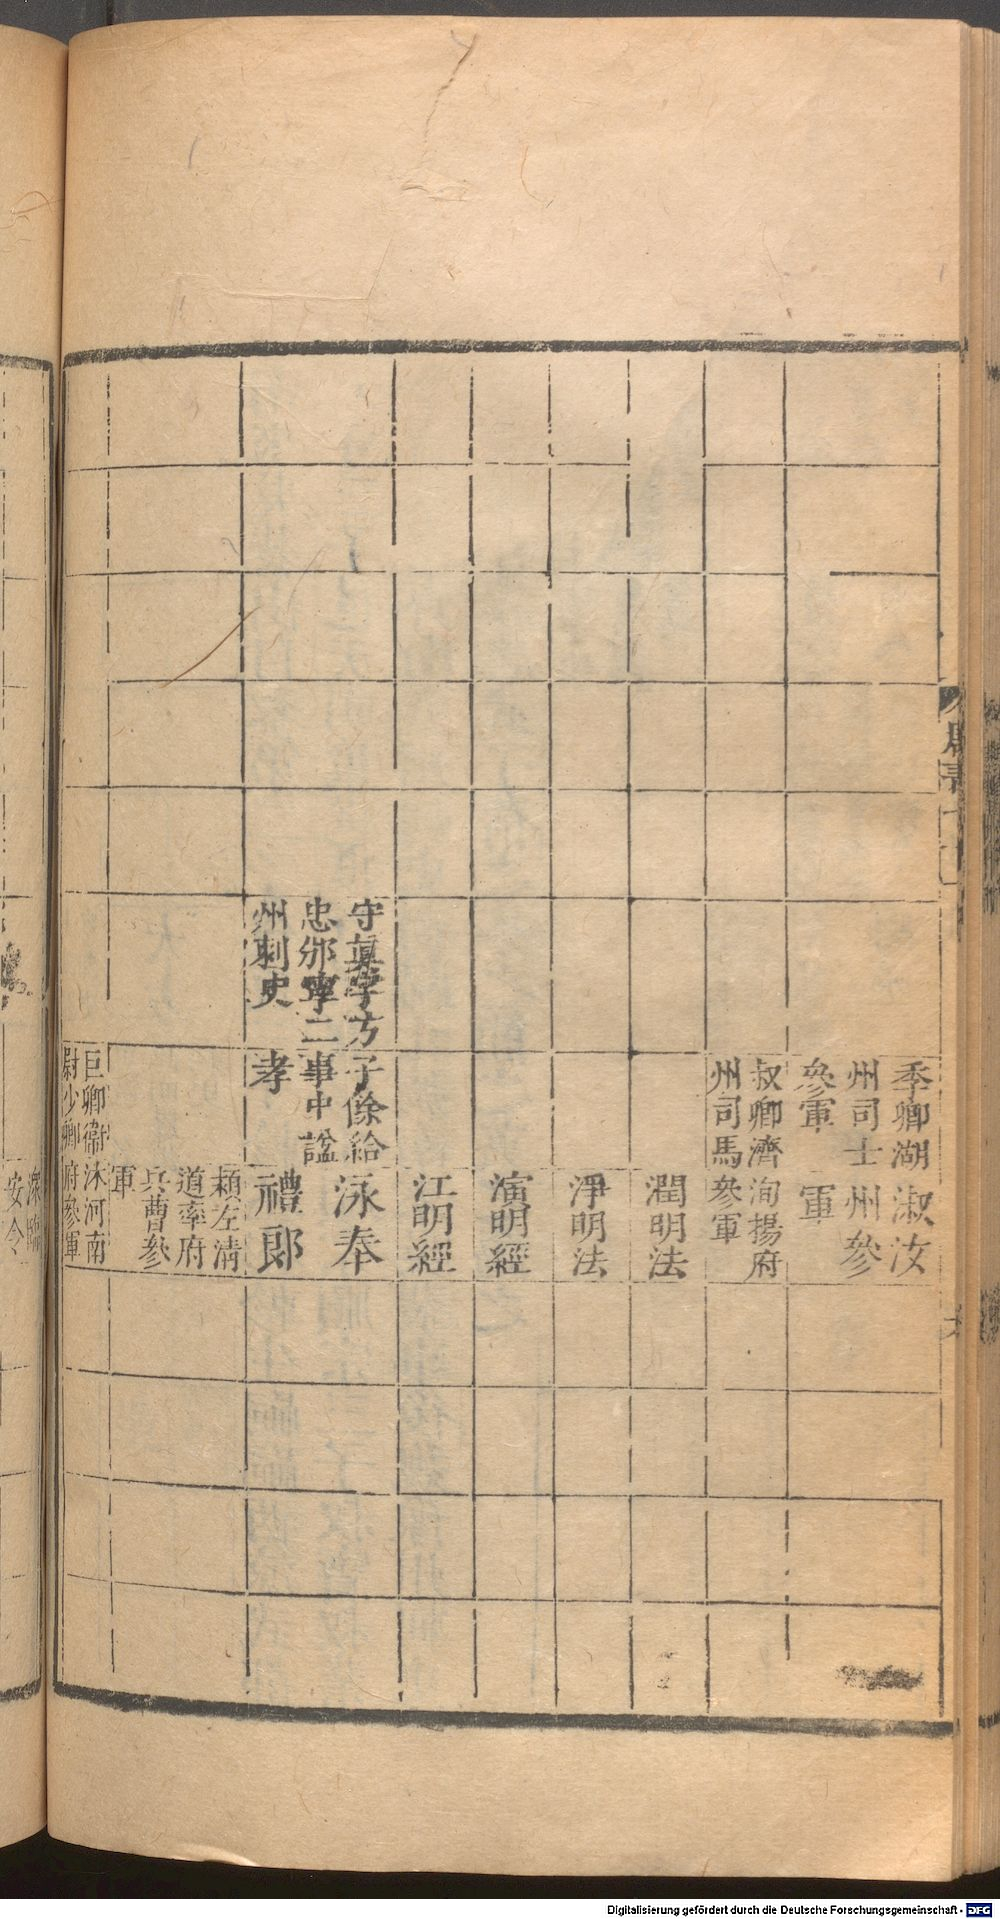 季卿湖
州司士
參軍
淑汝
州參
軍
叔卿濟
州司馬
洵揚府
參軍
潤明法
淨明法
演明經
江明經
守真字方
忠邠寧二
州刺史
子餘給
事中諡
孝
泳奉
禮郎
穎左清
道率府
兵曹參
軍
巨卿衞
尉少卿
沐河南
府參軍
安令
Digitalisierung gefördert durch die Deutsche Forschungsgemeinschaft - DFG